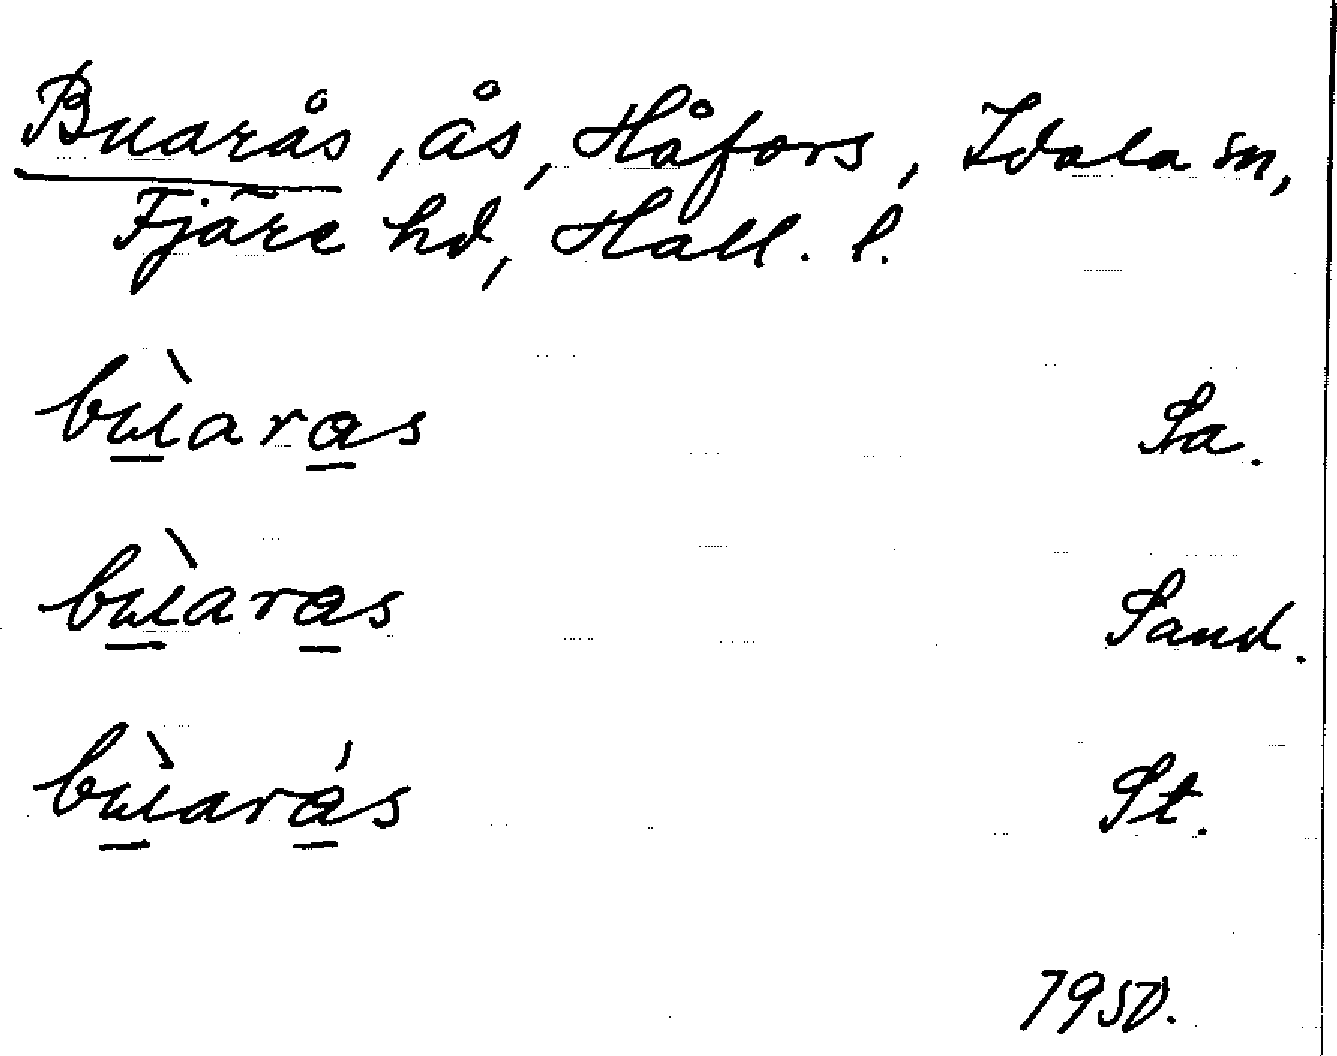 Buarås, ås, Håfors, Idala sn,
Fjäre hd, Hall. l.
bùaras Sa.
bùaras Sand.
bùarás St.
1950.